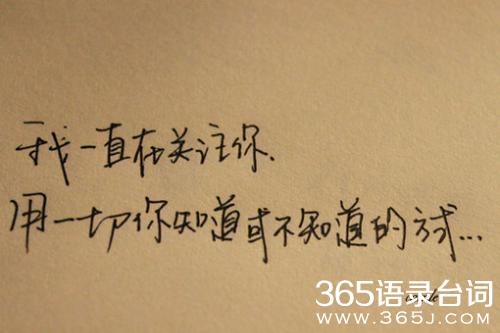 我一直在关注你.
用一切你知道或不知道的方式...
365语录台词
www.365j.com